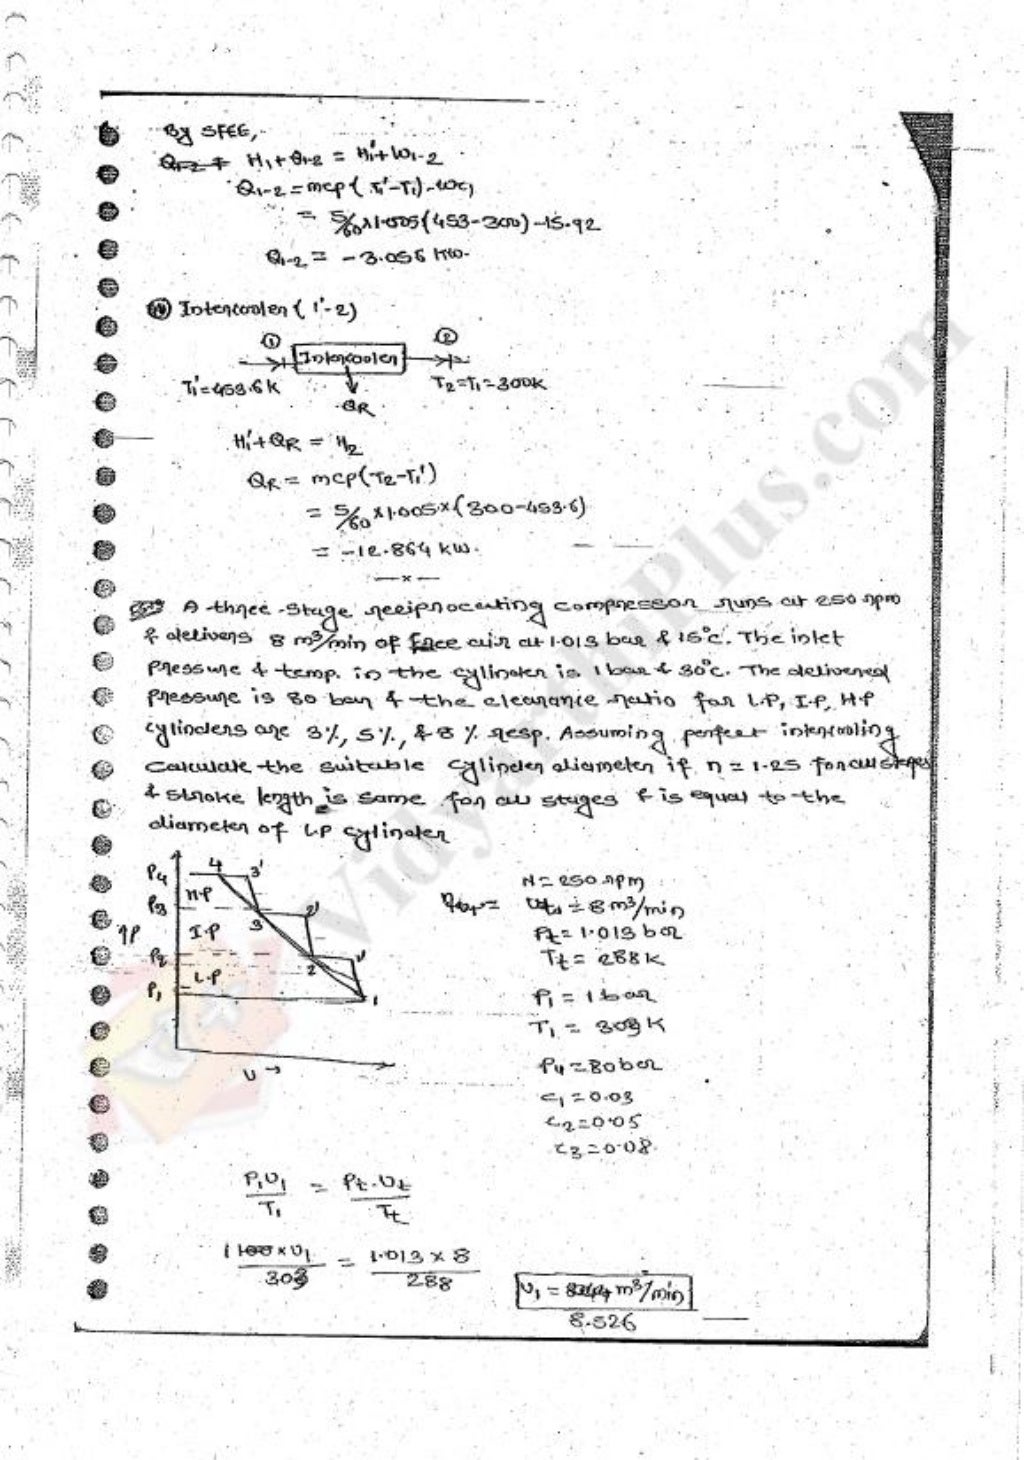 By SFEE,
H1 + Q1-2 = H1' + W1-2
Q1-2 = mcp(T1'-T1)-Wc1
= 5/60 x1.005(453-300)-15.92
Q1-2 = -3.056 kw.
(iv) Intercooler (1'-2)
① ②
Intercooler
T1'=453.6K T2=T1=300K
QR
H1'+QR = H2
QR = mcp(T2-T1')
= 5/60 x1.005x(300-453.6)
= -12.864 kw.
—x—
A three-stage reciprocating compressor runs at 250 rpm
& delivers 8 m³/min of free air at 1.013 bar & 15°c. The inlet
pressure & temp. in the cylinder is 1 bar & 30°c. The delivered
pressure is 80 bar & the clearance ratio for L.P, I.P, H.P
cylinders are 3%, 5%, & 8% resp. Assuming perfect intercooling
calculate the suitable cylinder diameter if n = 1.25 for all stages
& stroke length is same for all stages & is equal to the
diameter of L.P cylinder
P4 4 3' N = 250 rpm
H.P
P3 3 2' = 8 m³/min
↑P I.P Pt = 1.013 bar
P2 2 1' Tt = 288 K
L.P
P1 1 P1 = 1 bar
T1 = 303 K
V → P4 = 80 bar
c1 = 0.03
c2 = 0.05
c3 = 0.08
P1V1/T1 = Pt.Vt/Tt
1 x V1/303 = 1.013 x 8/288
V1 = m³/min
8.526
VidyarthiPlus.com